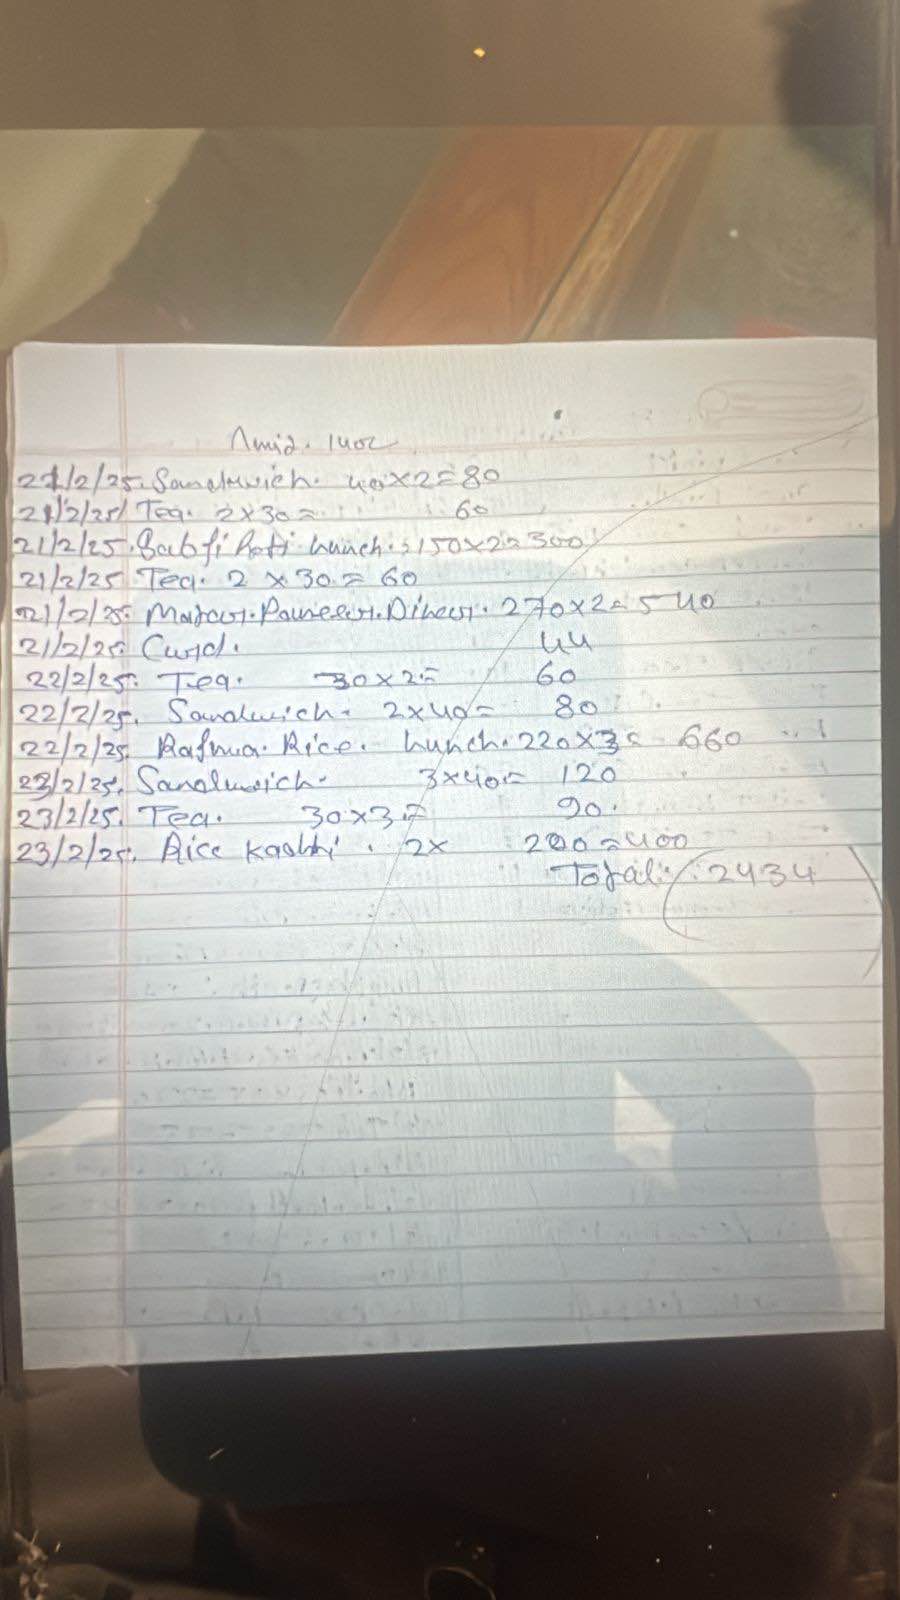 Amid. 1402
21/2/25. Sandwich. 40x2=80
21/2/25/ Tea. 2x30= 60
21/2/25. Sabji Roti Lunch.:150x2=300
21/2/25 Tea. 2 x 30.= 60
21/2/25. Matar. Paneear. Dinear. 270x2=540
21/2/25. Curd. 44
22/2/25. Tea. 30x2= 60
22/2/25. Sandwich. 2x40= 80
22/2/25. Rajhua. Rice. Lunch. 220x3= 660
23/2/25. Sandwich. 3x40= 120
23/2/25. Tea. 30x3= 90.
23/2/25. Rice Kadhi. 2x 200=400
Total: 2434